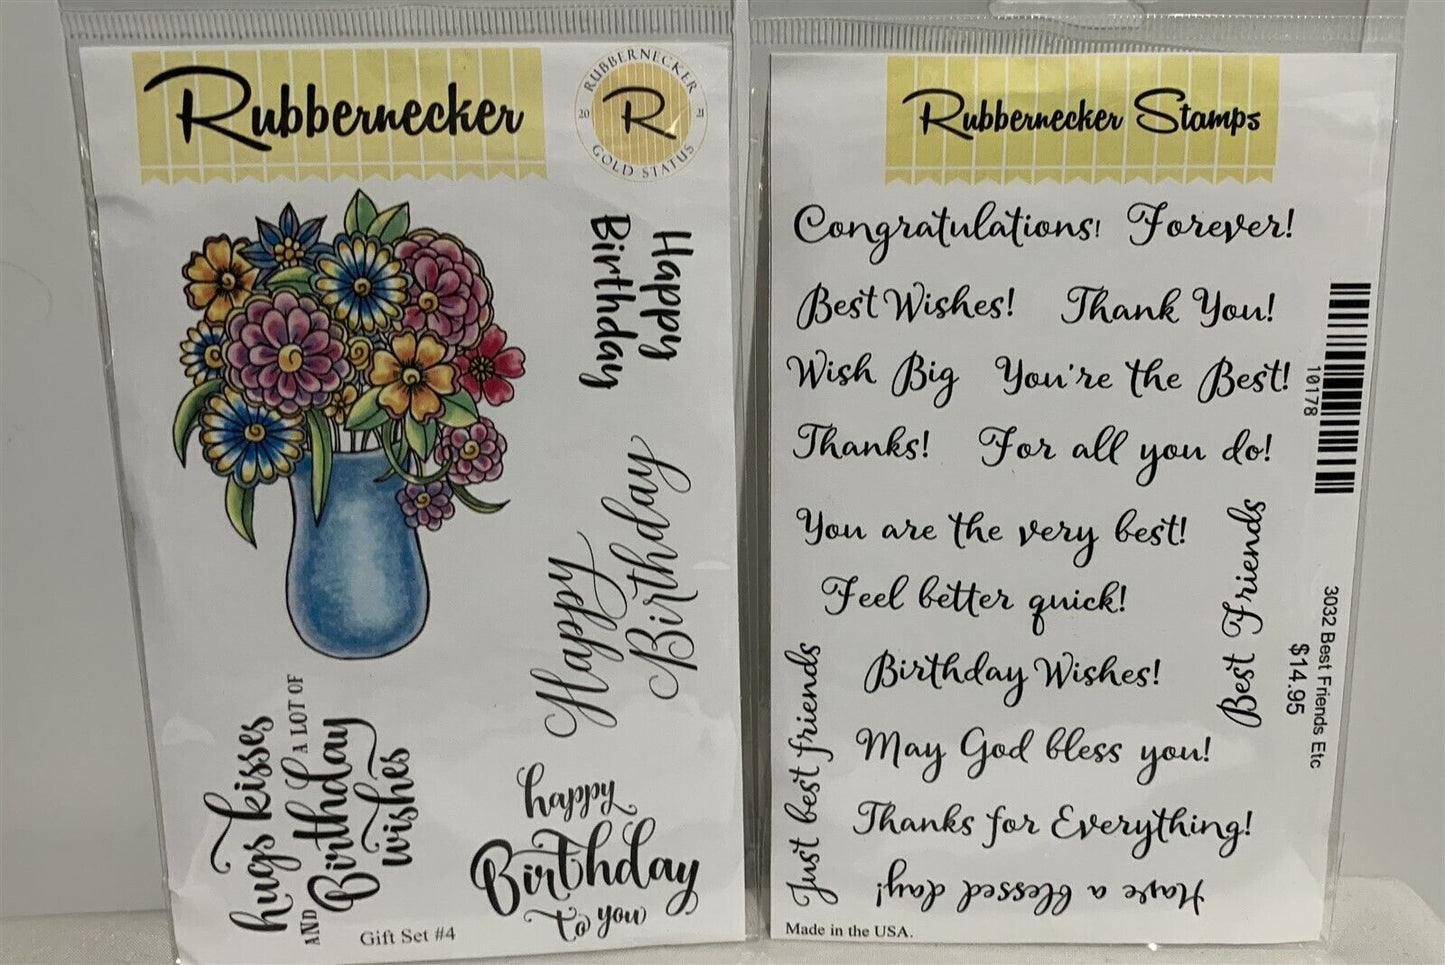 Rubbernecker
RUBBERNECKER
20 R 21
GOLD STATUS
Happy
Birthday
Happy
Birthday
hugs kisses
AND A LOT OF
Birthday
wishes
happy
Birthday
to you
Gift Set #4
Rubbernecker Stamps
Congratulations! Forever!
Best Wishes! Thank You!
Wish Big You're the Best!
Thanks! For all you do!
You are the very best!
Feel better quick!
Best Friends
Birthday Wishes!
May God bless you!
Just best friends
Thanks for Everything!
Have a blessed day!
Made in the USA.
10178
3032 Best Friends Etc
$14.95